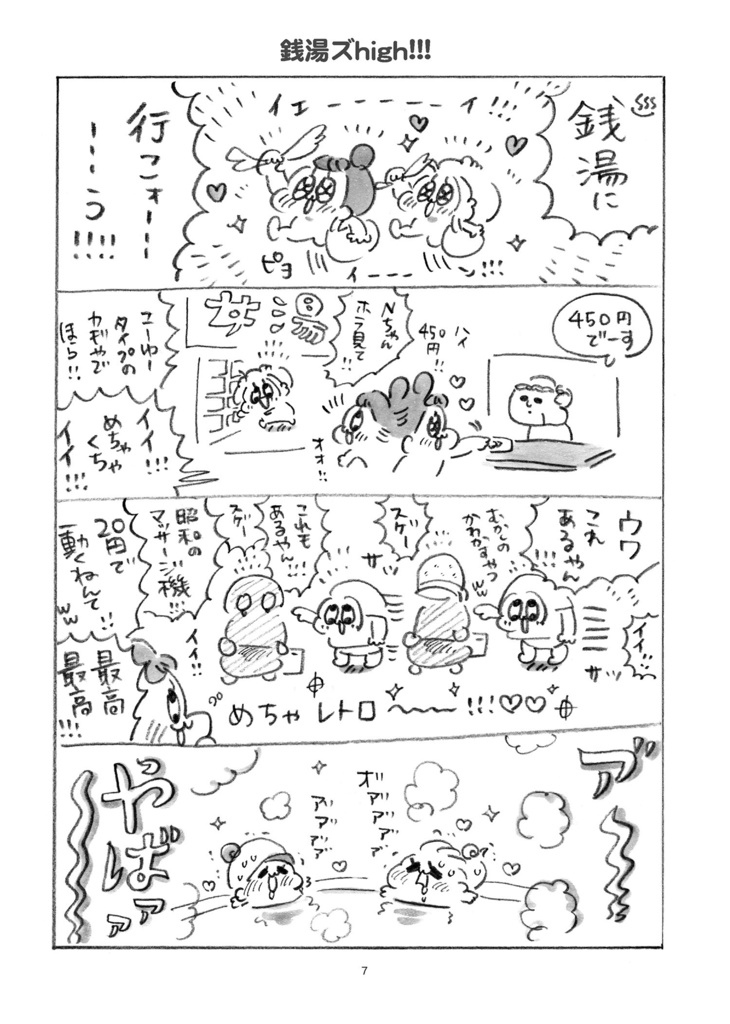 銭湯ズhigh!!!
銭湯に
イエーーーーーイ!!!
行こォーー
ーーーう!!!!
ピョ
イーーーーン!!!
450円
でーす
ハイ
450円!!
Nちゃん
ホラ見て
!!!
女湯
オオ!!
こーゆー
タイプの
カギやで
ほら!!
イイ!!!
めちゃ
くちゃ
イイ!!!
ウワ
これ
あるやん
!!!
むかしの
かわかすやつ
ww
イイ!!
サッ
スゲー
サッ
これも
あるやん
!!!
スゲー
昭和の
マッサージ機!!!
イイ!!
20円で
動くねんて!!
ww
めちゃレトロ〜〜〜!!!
最高
最高
!!!
ア゛〜〜
オ゛ア゛ア゛ア゛ア゛
ア゛ア゛ア゛ァ
やばァァ
7